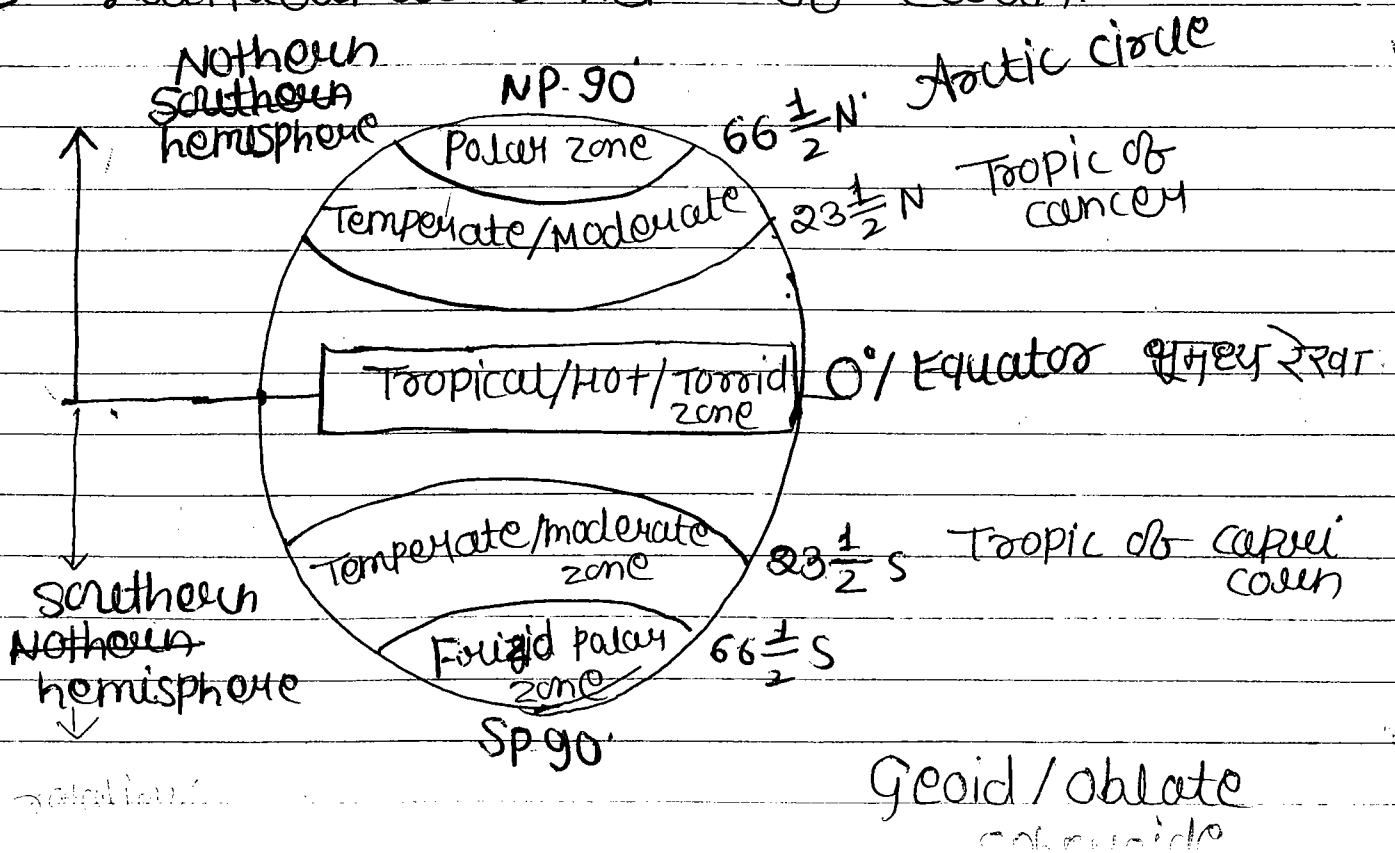 Nothern
Southern
hemisphere
NP-90°
Polar zone
66 1/2 N° Arctic circle
Temperate/Moderate
23 1/2 N Tropic of
cancer
Tropical/Hot/Torrid
zone
0°/ Equator भूमध्य रेखा
Temperate/moderate
zone
23 1/2 S Tropic of capri
corn
Southern
Nothern
hemisphere
Frigid polar
zone
66 1/2 S
SP 90°
Geoid / oblate